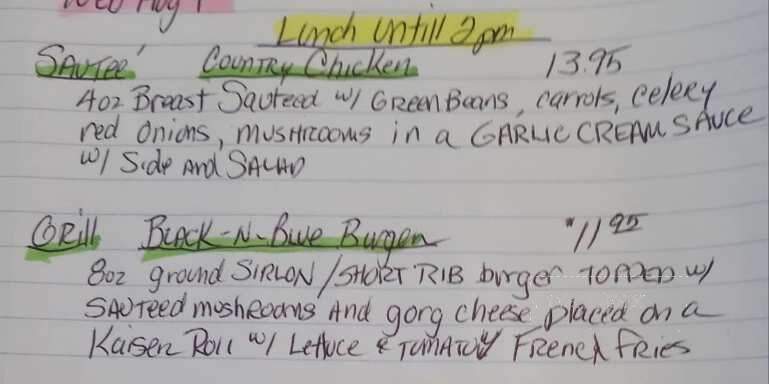 Wed Aug 1
Lunch Untill 2pm
SAUTEE' COUNTRY Chicken 13.95
4oz Breast Sauteed w/ GREEN Beans, carrots, celery
red onions, MUSHROOMS in a GARLIC CREAM SAUCE
w/ Side AND SALAD
GRill BLACK-N-Blue Burger $11 95
8oz ground SIRLON / SHORT RIB burger TOPPED w/
SAUTEED mushrooms And gorg cheese placed on a
Kaiser Roll w/ Lettuce & TOMATOW French fries